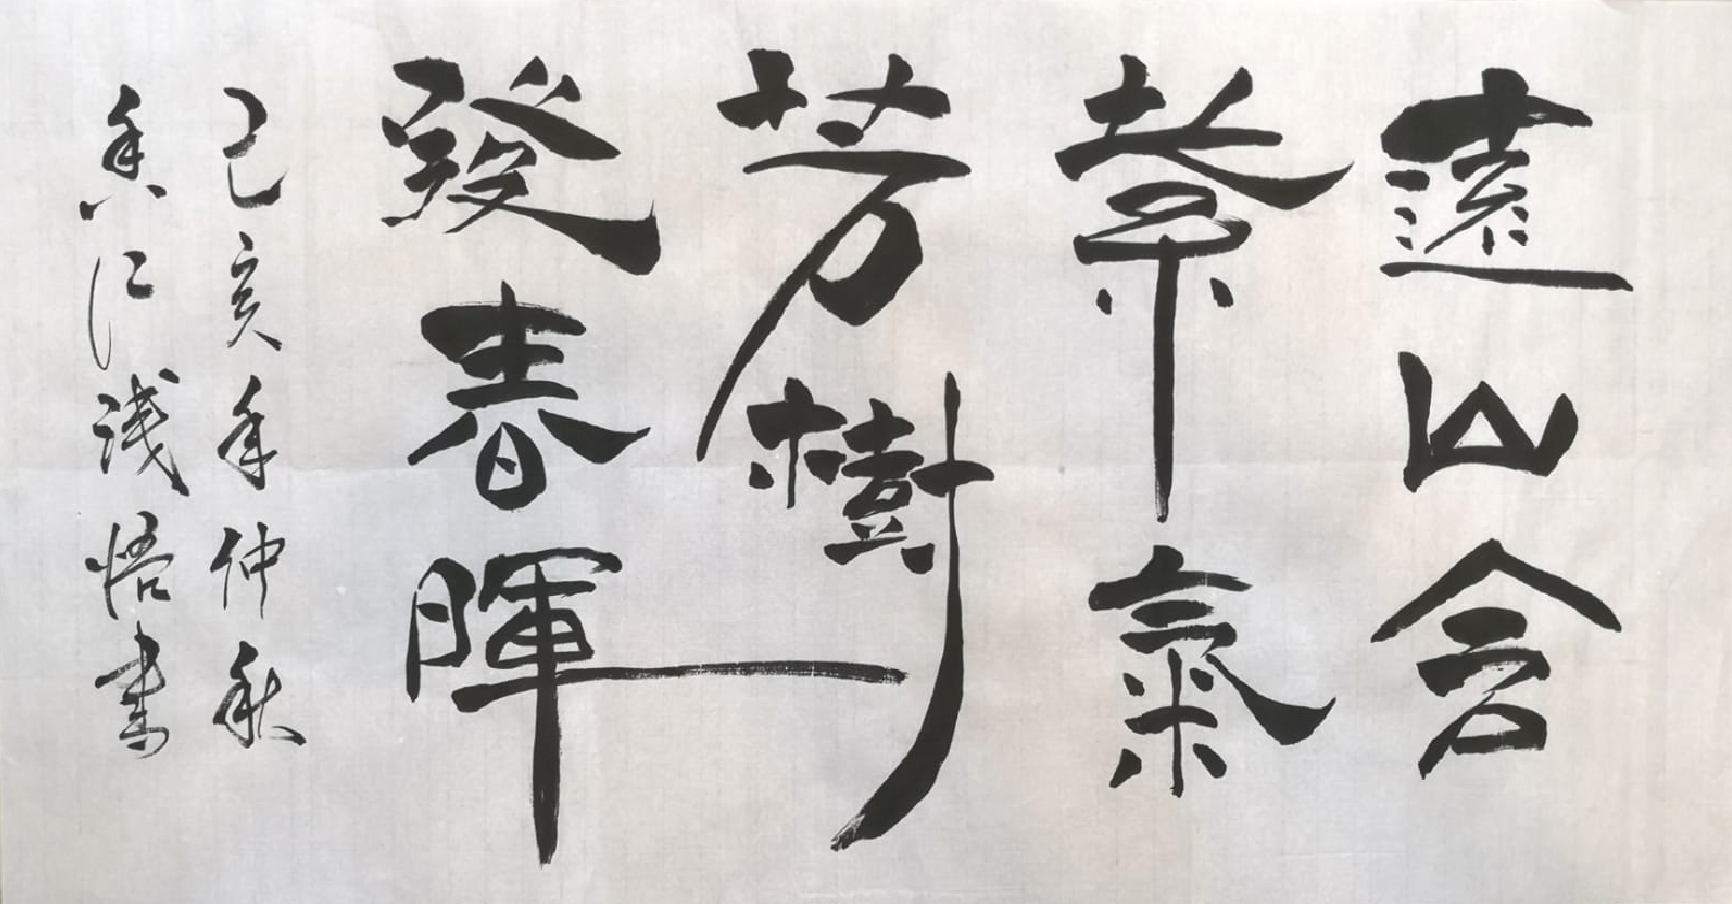 遠山含
紫氣
芳樹
發春暉
己亥年仲秋
浅悟書